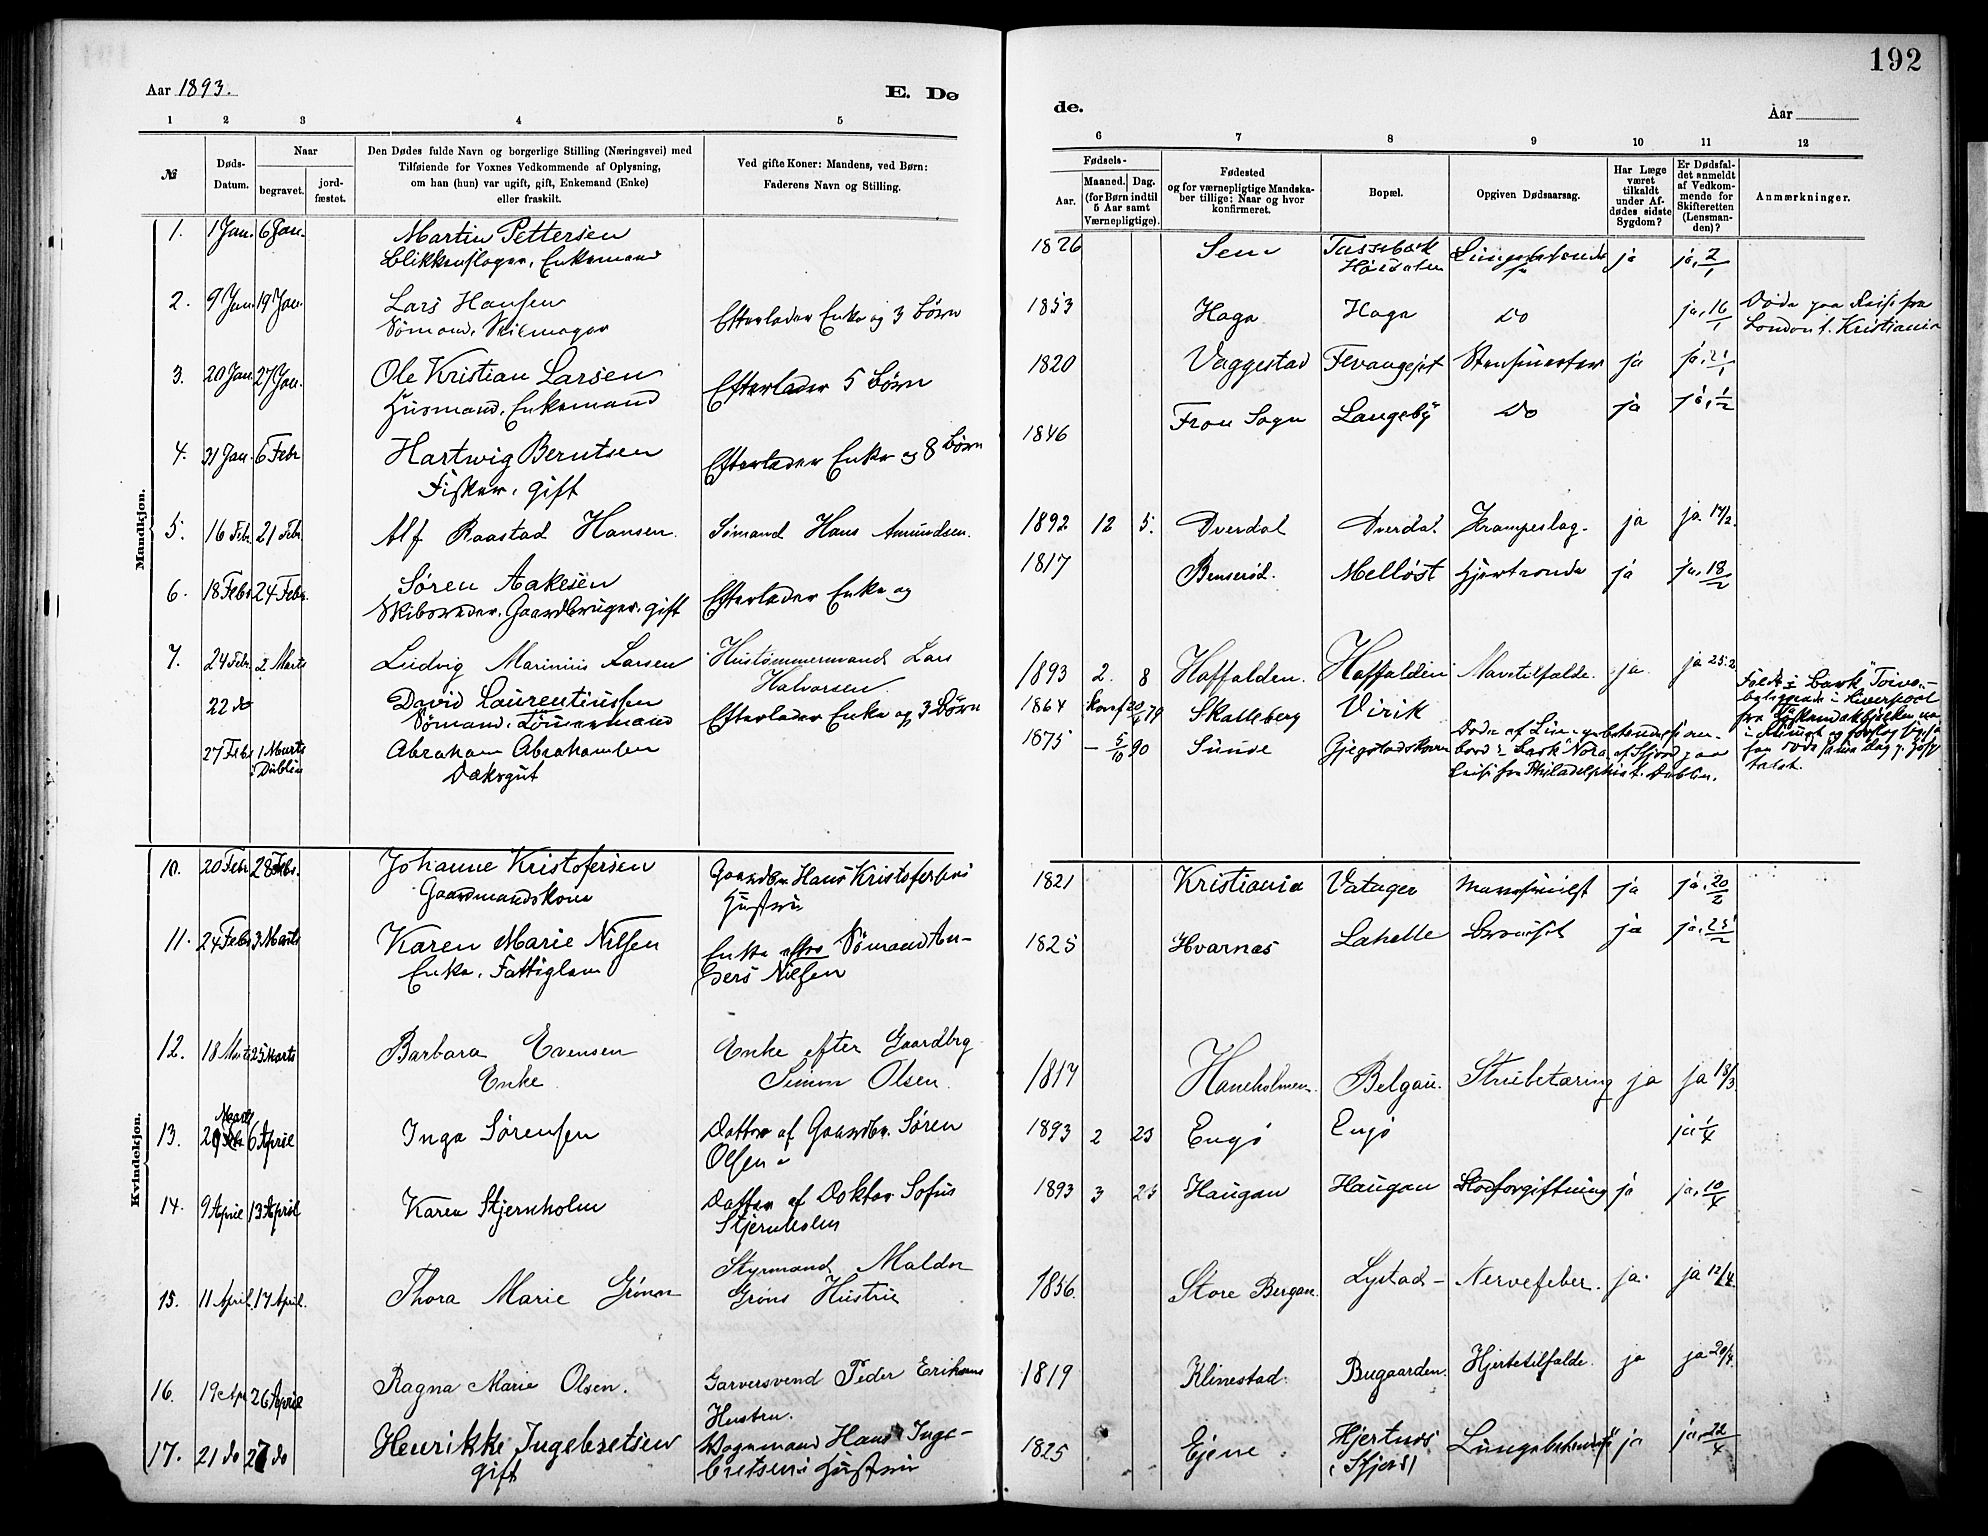 192
Aar 1893.
E. Dø
de.
Aar
1 2 3 4 5
6 7 8 9 10 11 12
№
Døds-Datum.
Naar
begravet.
jord-fæstet.
Den Dødes fulde Navn og borgerlige Stilling (Næringsvei) med
Tilføiende for Voxnes Vedkommende af Oplysning,
om han (hun) var ugift, gift, Enkemand (Enke)
eller fraskilt.
Ved gifte Koner: Mandens, ved Børn:
Faderens Navn og Stilling.
Fødsels-
Aar.
Maaned. Dag.
(for Børn indtil
5 Aar samt
Værnepligtige).
Fødested
og for værnepligtige Mandska-
ber tillige: Naar og hvor
konfirmeret.
Bopæl.
Opgiven Dødsaarsag.
Har Læge
været
tilkaldt
under Af-
dødes sidste
Sygdom?
Er Dødsfal-
det anmeldt
af Vedkom-
mende for
Skifteretten
(Lensman-
den)?
Anmærkninger.
Mandkjøn.
1. 1 Jan. 6 Jan. Martin Pettersen 1826 Sem ja ja, 2/1
Blikkenslager, Enkemand
2. 9 Jan. 19 Jan. Lars Hansen Efterlader Enke og 3 Børn 1853 Haga Haga Do ja, 16/1 Døde paa Reise fra
Sømand, Seilmager London t. Kristiania
3. 20 Jan. 27 Jan. Ole Kristian Larsen Efterlader 5 Børn 1820 Vaggestad ja ja, 21/1
Husmand, Enkemand
4. 31 Jan. 6 Febr Hartwig Berntsen Efterlader Enke og 8 Børn 1846 Fron Sogn Langeby Do ja ja, 1/2
Fisker, gift
5. 16 Febr. 21 Febr Alf Raastad Hansen. Sømand Hans Amundsen. 1892 12 5. Dverdal Dverdal. Krampeslag. ja ja. 17/2.
6. 18 Febr 24 Febr. Søren Aakesen Efterlader Enke og 1817 Benserød. Melløst ja ja, 18/2
Skibsreder, Gaardbruger, gift
7. 24 Febr. 2 Marts Ludvig Marinius Larsen Hustømmermand Lars 1893 2. 8 Haffalden. Haffalden Mavetilfælde. ja. ja 25.2
Halvorsen.
22 do David Laurentiussen Efterlader Enke og 3 Børn 1864 Konf 79 Skalleberg Virik
Sømand, Tømmermand
27 Febr 1 Marts Abraham Abrahamsen 1875 – 5/10 90 Sunde
i Dublin Dæksgut
Døde af Lungebetændelse om-
bord i Bark "Nora" af Sfjord paa
Reise fra Philadelphia t. Dublin.
Kvindekjøn.
10. 20 Febr 28 Febr. Johanne Kristofersen Gaardbr. Hans Kristofersens 1821 Kristiania Vatager ja ja, 20/2
Gaardmandskone Hustru
11. 24 Febr 3 Marts Karen Marie Nilsen Enke efter Sømand An- 1825 Hvarnæs Lahelle ja ja, 25/2
Enke, Fattiglem ders Nilsen
12. 18 Marts 25 Marts Barbara Evensen Enke efter Gaardbrg 1817 Haneholmen. Belgau. Strubetæring ja ja 18/3
Enke Simon Olsen.
13. 29 Marts 6 April Inga Sørensen Datter af Gaardbr. Søren 1893 2 23 Engø Engø ja 1/4
Olsen
14. 9 April 13 April Karen Stjernholm Datter af Doktor Sofus 1893 3 23 Haugan Haugan Blodforgiftning ja ja, 10/4
Stjernholm
15. 11 April. 17 April. Thora Marie Grønn Styrmand Maldor 1856. Store Bergan. Lystad – Nervefeber. ja. ja 12/4.
Grøns Hustru
16. 19 Apr 26 April Ragna Marie Olsen. Garversvend Peder Eriksens 1819 Klinestad. Bugaarden. Hjertetilfælde. ja ja 20/4.
Hustru.
17. 21 do 27 do Henrikke Ingebretsen Vognmand Hans Inge- 1825 Hjertnæs Lungebetændelse ja ja 22/4
gift bretsens Hustru (Sfjord)